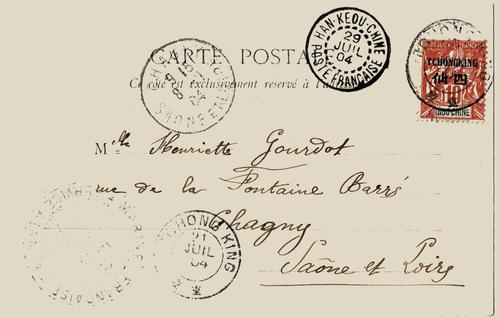 CARTE POSTA
Ce côté est exclusivement réservé à l'a
HAN-KEOU-CHINE
29
JUIL
04
POSTE FRANÇAISE
TCHONGKING
INDO-CHINE
CHAGNY
SAONE-ET-
Mlle Henriette Gourdot
rue de la Fontaine Barré
Chagny
Saône et Loire
TCHONG KING
21
JUIL
04
MARINE FRANÇAISE